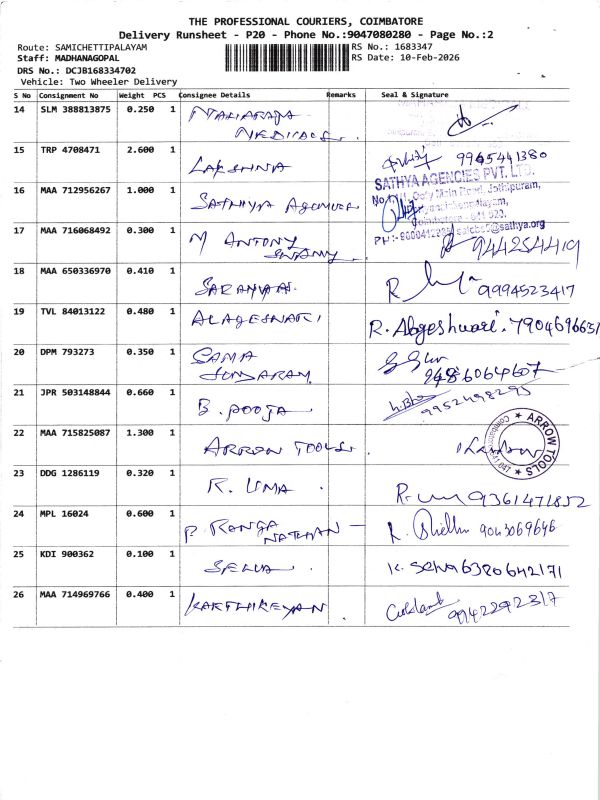 THE PROFESSIONAL COURIERS, COIMBATORE
Delivery Runsheet - P20 - Phone No.:9047080280 - Page No.:2
Route: SAMICHETTIPALAYAM RS No.: 1683347
Staff: MADHANAGOPAL RS Date: 10-Feb-2026
DRS No.: DCJB168334702
Vehicle: Two Wheeler Delivery
S No Consignment No Weight PCS Consignee Details Remarks Seal & Signature
14 SLM 388813875 0.250 1 MAHARAJA
MEDICALS.
15 TRP 4708471 2.600 1 LAKSHNA 9945441380
SATHYA AGENCIES PVT. LTD.
16 MAA 712956267 1.000 1 SATHYA AGENCIES
17 MAA 716068492 0.300 1 M ANTONY
SWAMY 944254419
18 MAA 650336970 0.410 1 SARANYA R 9994523417
19 TVL 84013122 0.480 1 ALAGESWARI R. Alageshwari. 7904696651
20 DPM 793273 0.350 1 SAMA
SUNDARAM 9486064607
21 JPR 503148844 0.660 1 B. POOJA 9952498295
22 MAA 715825087 1.300 1 ARROW TOOLS. ARROW TOOLS
23 DDG 1286119 0.320 1 R. UMA R. 9361471852
24 MPL 16024 0.600 1 P. RANGA
NATHAN 9043069646
25 KDI 900362 0.100 1 SELVA K. Selva 6380642171
26 MAA 714969766 0.400 1 KARTHIKEYAN 9942292317